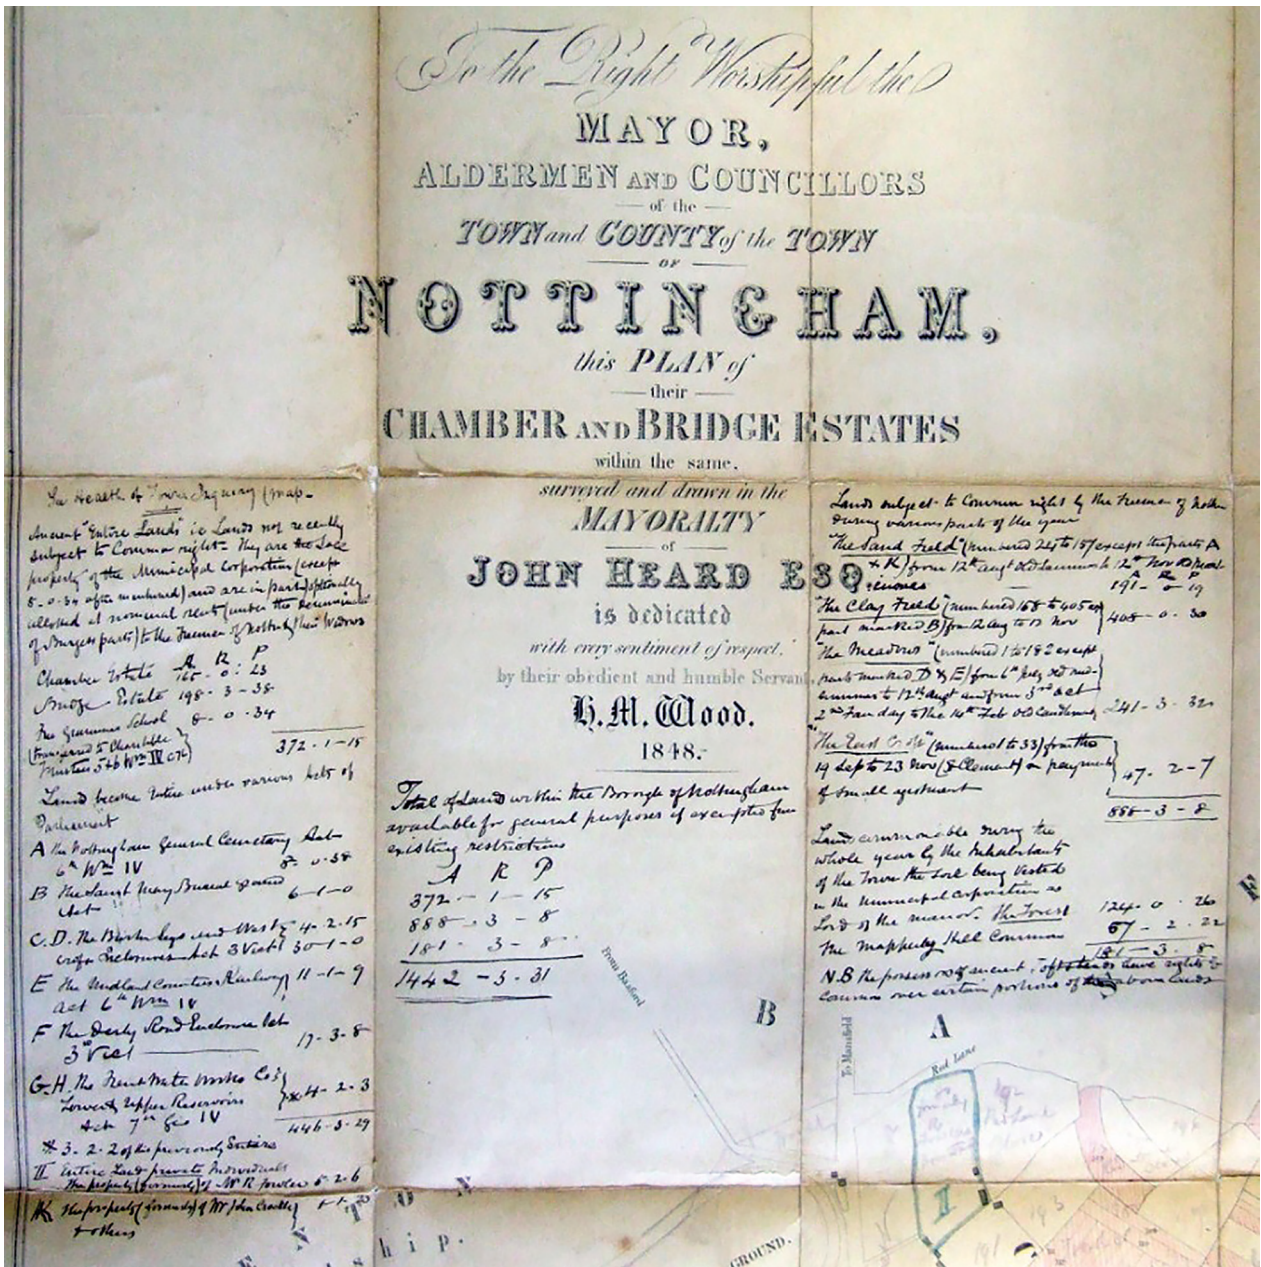 To the Right Worshipful the
MAYOR,
ALDERMEN AND COUNCILLORS
of the
TOWN and COUNTY of the TOWN
OF
NOTTINGHAM,
this PLAN of
their
CHAMBER AND BRIDGE ESTATES
within the same,
surveyed and drawn in the
MAYORALTY
of
JOHN HEARD ESQ
is dedicated
with every sentiment of respect,
by their obedient and humble Servant,
H. M. Wood.
1848.
Health of Towns Inquiry (map-
Ancient "Entire Lands" ie Lands not recently
subject to Common right - They are the Sole
property of the Municipal Corporation (except
8-0-34 after mentioned) and are in part
allotted at nominal rents (under the denomination
of Burgess parts) to the Freemen of their Widows
A R P
Chamber Estate 165 - 0 : 23
Bridge Estate 198 - 3 - 38
Free Grammar School 8 - 0 - 34
(transferred to Charitable
Trustees 5 & 6 Wm IV
372 - 1 - 15
Lands become Entire under various Acts of
Parliament
A The Nottingham General Cemetery Act
6th Wm IV 8 - 0 - 38
B The Saint Mary Burial ground
Act 6 - 1 - 0
C. D. The and West 4 - 2 - 15
croft Inclosures Act 3 Vict 30 - 1 - 0
E The Midland Counties Railway 11 - 1 - 9
act 6th Wm IV
F The Derby Road Enclosure Act
3rd Vict 17 - 3 - 8
G. H. The Trent Water Works Co
Lower & Upper Reservoirs *4 - 2 - 3
Act 7th Geo IV
446 - 3 - 29
* 3 - 2 - 2 of this previously Entire
II Entire Land private Individuals
The property (formerly) of Mr R Fowler 5 - 2 - 6
K The property (formerly) of Mr John
& others
Total of Land within the Borough of Nottingham
available for general purposes if exempted from
existing restrictions
A R P
372 - 1 - 15
888 - 3 - 8
181 - 3 - 8
1442 - 3 - 31
Lands subject to Common right by the Freemen of
during various parts of the year
"The Sand Field" (numbered 24 to 157 except the parts A
& K) from 12th Augt old Lammas to 12th Nov
A R P
191 - 0 - 19
"The Clay Field" (numbered 168 to 405 ex
part marked B) from 12 Aug to 12 Nov 408 - 0 - 30
"The Meadows" (numbered 1 to 182 except
parts marked D & E) from 6th July old mid-
summer to 12th augt and from 3rd oct
2nd Fair day to the 14th Feb old Candlemas 241 - 3 - 32
"The East Croft" (numbered to 33) from the
19 Sept to 23 Nov (St Clement) on payment
of small agistment 47 - 2 - 7
888 - 3 - 8
Land commonable during the
whole year by the Inhabitants
of the Town the soil being vested
in the Municipal corporation as
Lord of the manor. The Forest 124 - 0 - 26
The Mapperley Hill Common 57 - 2 - 22
181 - 3 - 8
N.B The possessors of ancient have rights of
common over certain portions of above lands
From Basford
B
A
To Mansfield
Rod Lane
II
GROUND.
ENTON
ship.